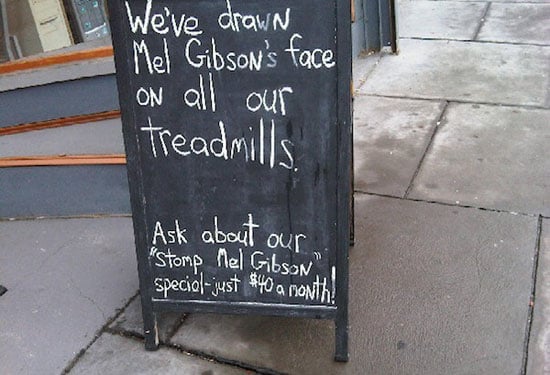 We've drawN
Mel GibsoN's face
oN all our
treadmills.
Ask about our
"Stomp Mel GibsoN"
special-just $40 a month!